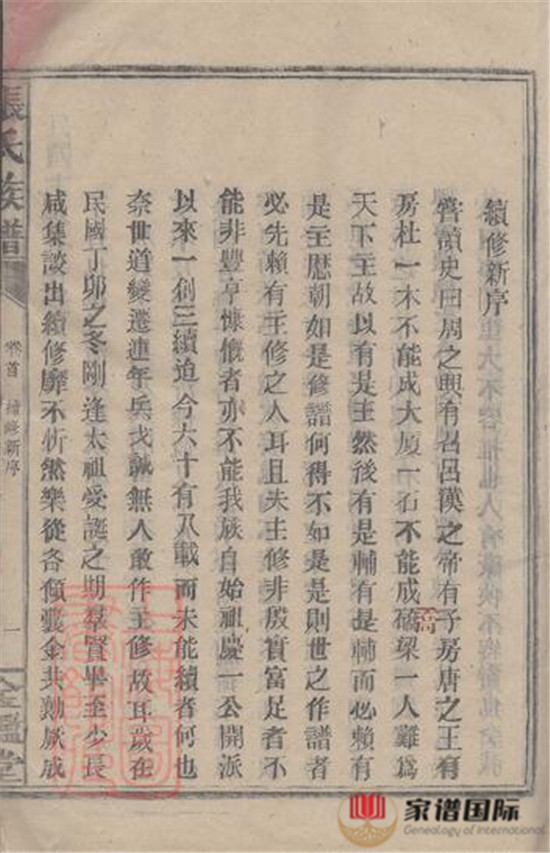 續修新序
嘗讀史曰周之興有召呂漢之帝有子房唐之王有
房杜一木不能成大厦一石不能成礄梁一人難爲
天下主故以有是主然後有是輔有是輔而必賴有
是主歷朝如是修譜何得不如是是則世之作譜者
必先賴有主修之人耳且夫主修非殷實富足者不
能非豐亨慷慨者亦不能我族自始祖慶一公開派
以來一創三續迨今六十有八載而未能續者何也
奈世道變遷連年兵戈誠無人敢作主修故耳歲在
民國丁卯之冬剛逢太祖愛誕之期羣賢畢至少長
咸集談出續修靡不忻然樂從各傾囊金共勷厥成
張氏族譜
卷首 續修新序
一
金鑑堂
家谱国际
Genealogy of International